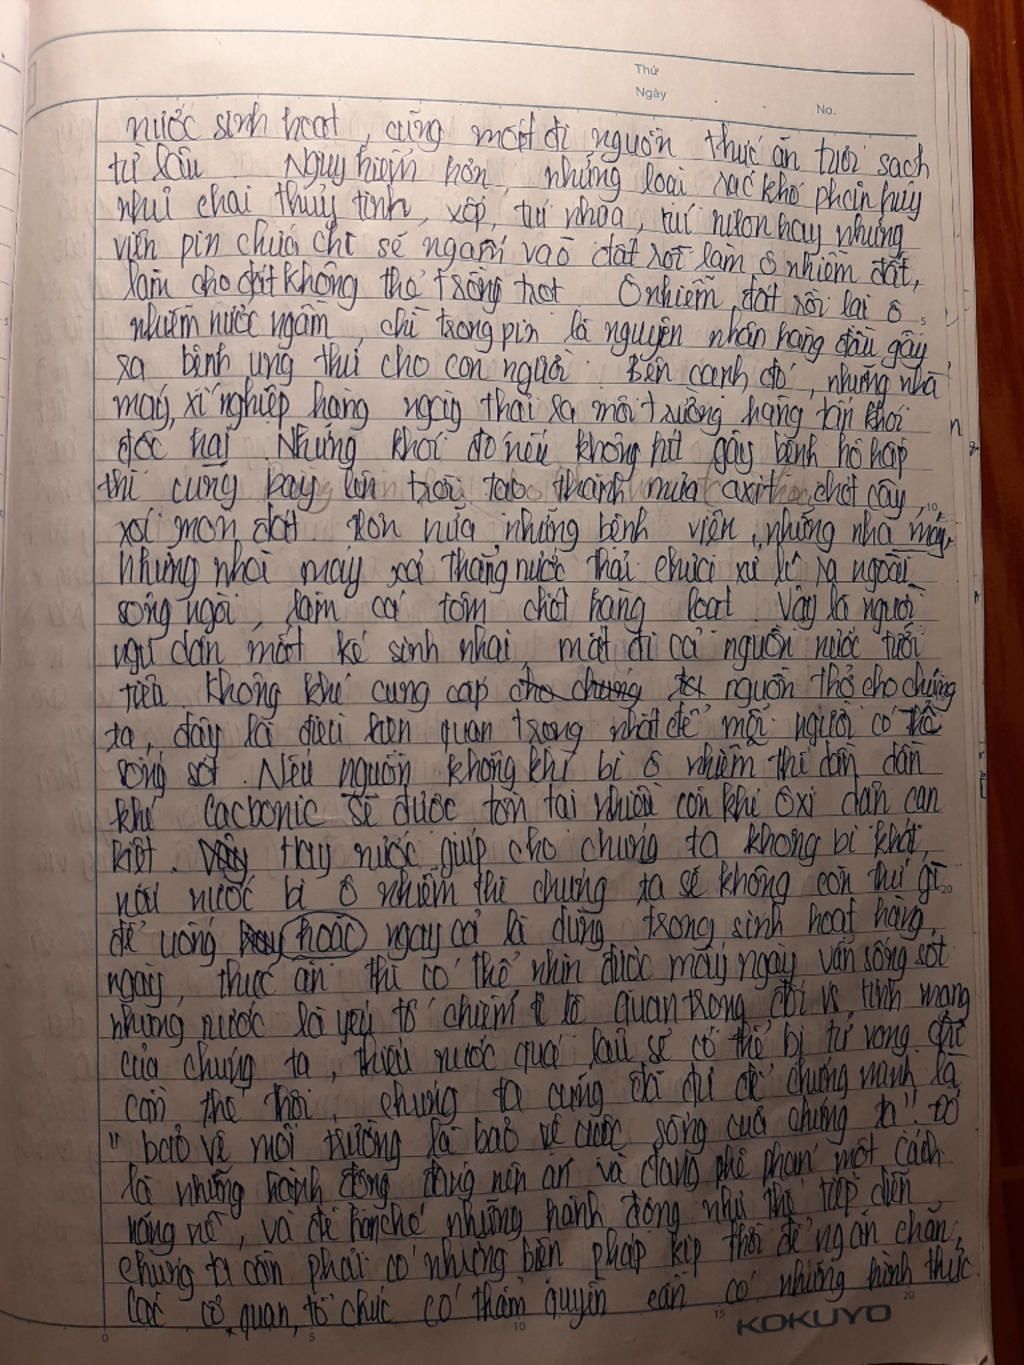 Thứ
Ngày
No.
nước sinh hoạt, cũng mất đi nguồn thức ăn tươi sạch
từ lâu Nguy hiểm hơn, những loại rác khó phân hủy
như chai thủy tinh, xốp, túi nhựa, túi nilon hay những
viên pin chứa chì sẽ ngấm vào đất rồi làm ô nhiễm đất,
làm cho đất không thể trồng trọt. Ô nhiễm đất rồi lại ô
nhiễm nước ngầm, chì trong pin là nguyên nhân hàng đầu gây
ra bệnh ung thư cho con người. Bên cạnh đó, những nhà
máy, xí nghiệp hàng ngày thải ra môi trường hàng tấn khói
độc hại. Những khói đó nếu không hít gây bệnh hô hấp
thì cũng bay lên trời tạo thành mưa axit chết cây,
xói mòn đất. Hơn nữa những bệnh viện, những nhà máy
những nhà máy xả thẳng nước thải chưa xử lí ra ngoài
sông ngòi, làm cá tôm chết hàng loạt. Vậy là người
ngư dân mất kế sinh nhai, mất đi cả nguồn nước tưới
tiêu. Không khí cung cấp cho chúng ta nguồn thở cho chúng
ta, đây là điều kiện quan trọng nhất để mỗi người có thể
sống sót. Nếu nguồn không khí bị ô nhiễm thì dần dần
khí Cacbonic sẽ được tồn tại nhiều còn khí ôxi dần cạn
kiệt. Vậy Hay nước giúp cho chúng ta không bị khát,
nếu nước bị ô nhiễm thì chúng ta sẽ không còn thứ gì
để uống hay hoặc ngay cả là dùng trong sinh hoạt hàng
ngày, thức ăn thì có thể nhịn được mấy ngày vẫn sống sót
nhưng nước là yếu tố chiếm tỉ lệ quan trọng đối vs tính mạng
của chúng ta, thiếu nước quá lâu sẽ có thể bị tử vong. Chỉ
cần thế thôi, chúng ta cũng đã đủ để chứng minh là
"bảo vệ môi trường là bảo vệ cuộc sống của chúng ta". Đó
là những hành động đáng nên án và đáng phê phán một cách
nặng nề, và để hạn chế những hành động như thế tiếp diễn,
chúng ta cần phải có những biện pháp kịp thời để ngăn chặn,
các cơ quan, tổ chức có thẩm quyền cần có những hình thức
0 5 10 15 20
KOKUYO